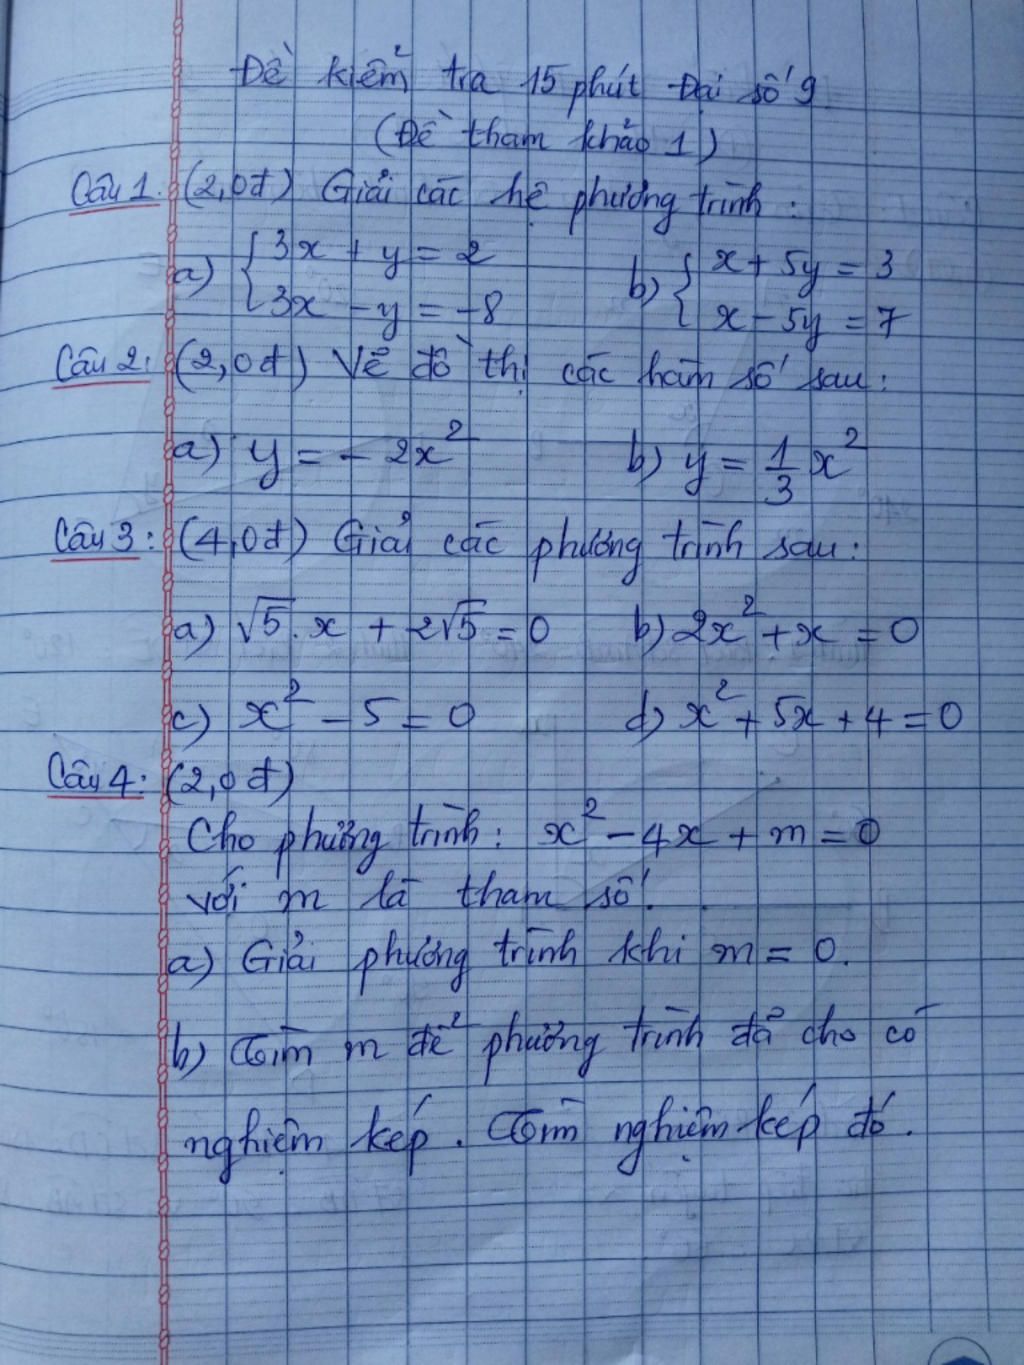 Đề kiểm tra 15 phút Đại số 9
(Đề tham khảo 1)
Câu 1: (2,0đ) Giải các hệ phương trình:
a) { 3x + y = 2 b) { x + 5y = 3
3x - y = -8 x - 5y = 7
Câu 2: (2,0đ) Vẽ đồ thị các hàm số sau:
a) y = - 2x² b) y = 1/3 x²
Câu 3: (4,0đ) Giải các phương trình sau:
a) √5. x + 2√5 = 0 b) 2x² + x = 0
c) x² - 5 = 0 d) x² + 5x + 4 = 0
Câu 4: (2,0đ)
Cho phương trình: x² - 4x + m = 0
với m là tham số.
a) Giải phương trình khi m = 0.
b) Tìm m để phương trình đã cho có
nghiệm kép. Tìm nghiệm kép đó.